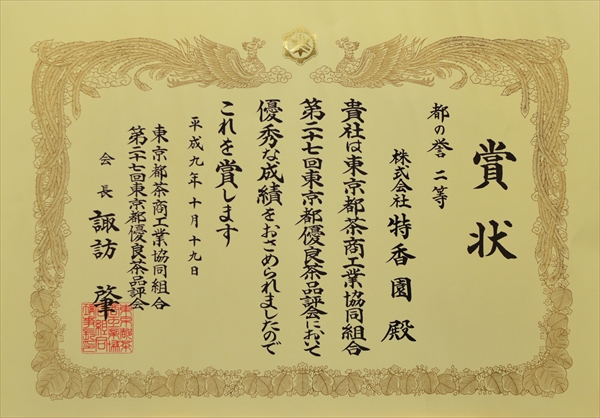 賞状
都の誉 二等
株式会社 特香園 殿
貴社は東京都茶商工業協同組合
第二十七回東京都優良茶品評会において
優秀な成績をおさめられましたので
これを賞します
平成九年十月十九日
東京都茶商工業協同組合
第二十七回東京都優良茶品評会
会長 諏訪 肇